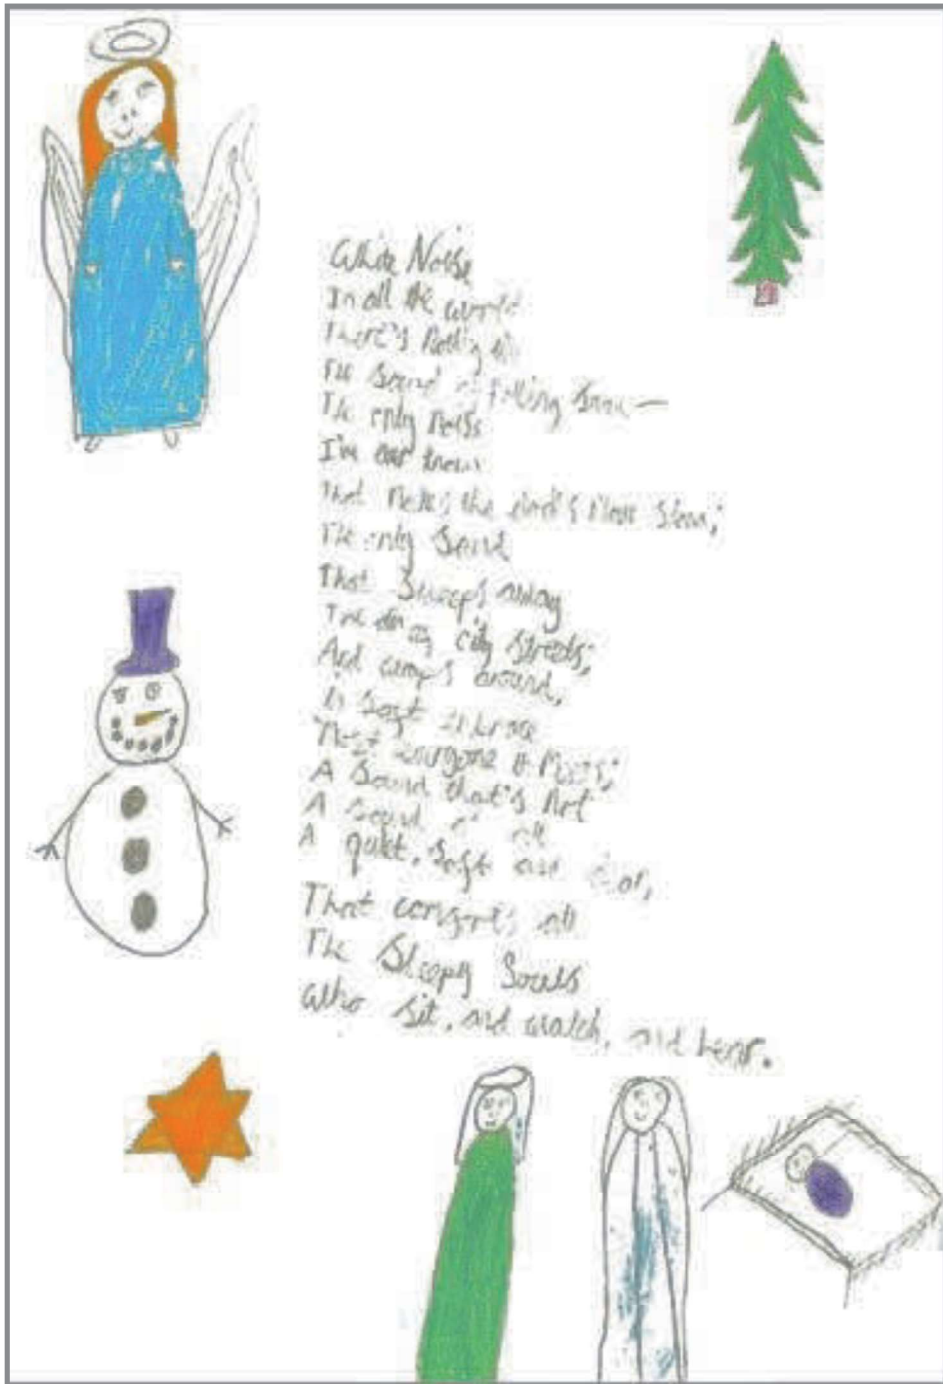 White Noise
In all the world
There's nothing
The sound of falling snow—
The only noise
I've ever known
That makes the
The only sound
That sweeps away
The city streets;
And wraps around,
In soft
everyone it meets;
A sound that's not
A sound at all
A quiet, soft and
That comforts all
The Sleepy Souls
Who sit, and watch, and hear.